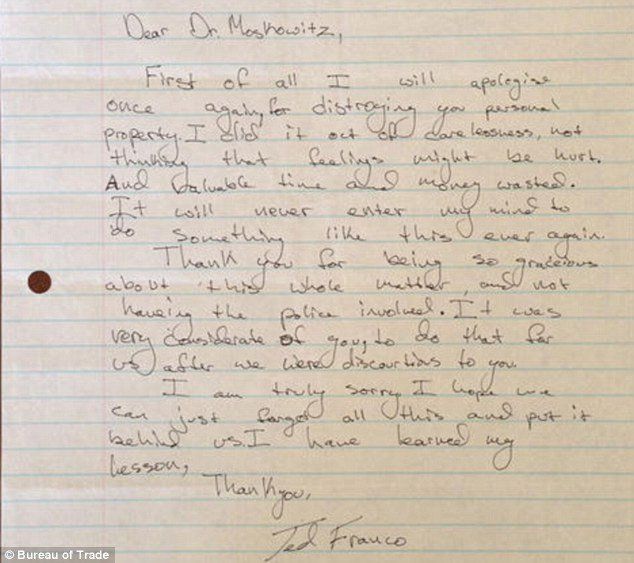 Dear Dr. Moskowitz,
First of all I will apologise
once again, for distroying you personal
property. I did it out of carelessness, not
thinking that feelings might be hurt.
And valuable time and money wasted.
It will never enter my mind to
do something like this ever again.
Thank you for being so gracious
about this whole matter, and not
haveing the police involved. It was
very considerate of you, to do that for
us, after we were discourtious to you.
I am truly sorry I hope we
can just forget all this and put it
behind us. I have learned my
lesson,
Thank you,
Ted Franco
© Bureau of Trade